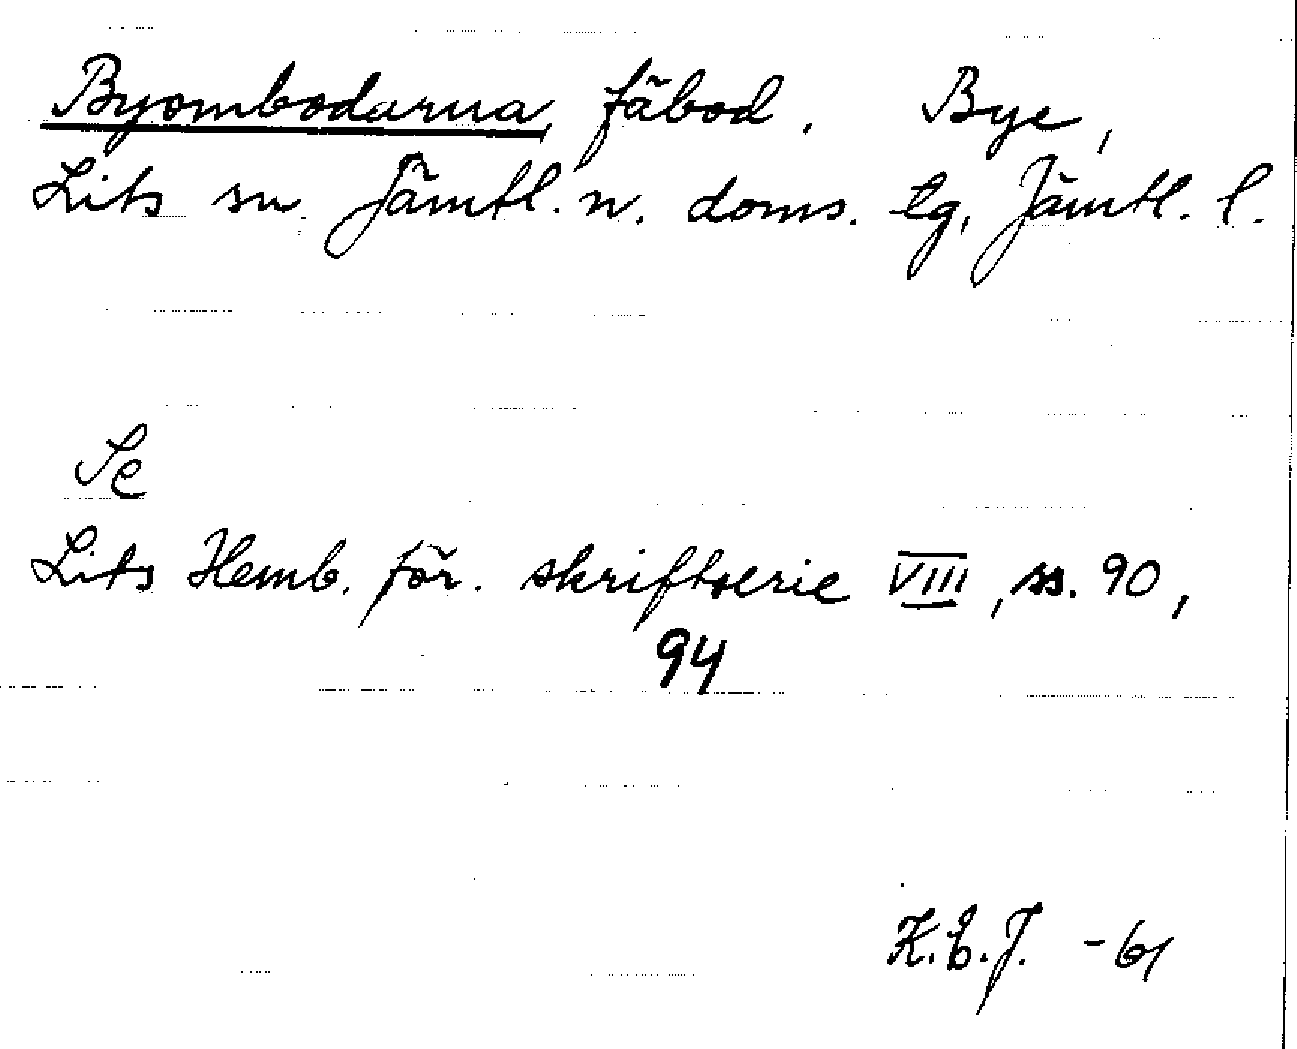 Byombodarna, fäbod. Bye,
Lits sn. Jämtl. n. doms. lg, Jämtl. l.
Se
Lits Hemb. för. skriftserie VIII, ss. 90,
94
K.E.J. -61